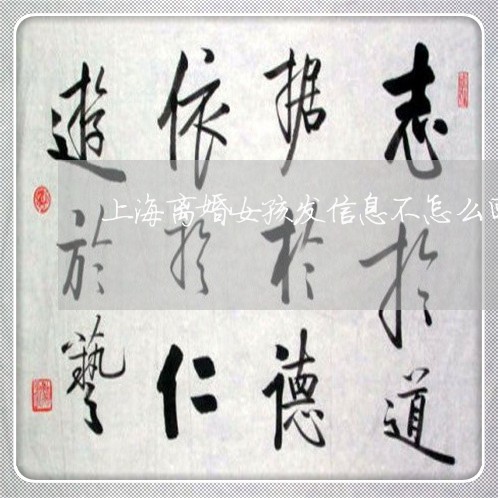 志扵道
据扵德
依扵仁
遊於藝
上海离婚女孩发信息不怎么